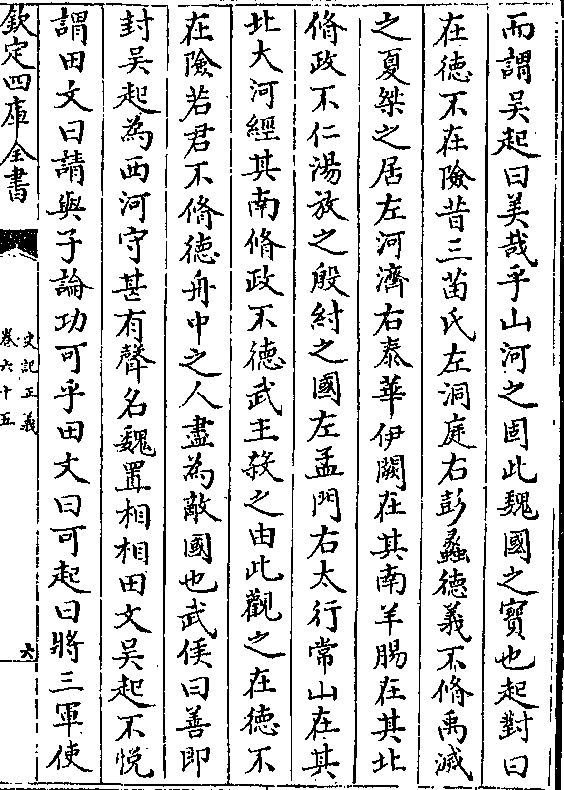 而謂吳起曰美哉乎山河之固此魏國之寳也起對曰
在徳不在險昔三苗氏左洞庭右彭蠡徳義不脩禹滅
之夏桀之居左河濟右泰華伊闕在其南羊腸在其北
脩政不仁湯放之殷紂之國左孟門右太行常山在其
北大河經其南脩政不徳武王殺之由此觀之在徳不
在險若君不脩徳舟中之人盡為敵國也武侯曰善即
封吳起為西河守甚有聲名魏置相相田文吳起不悦
謂田文曰請與子論功可乎田文曰可起曰將三軍使
欽定四庫全書
史記正義
卷六十五
六